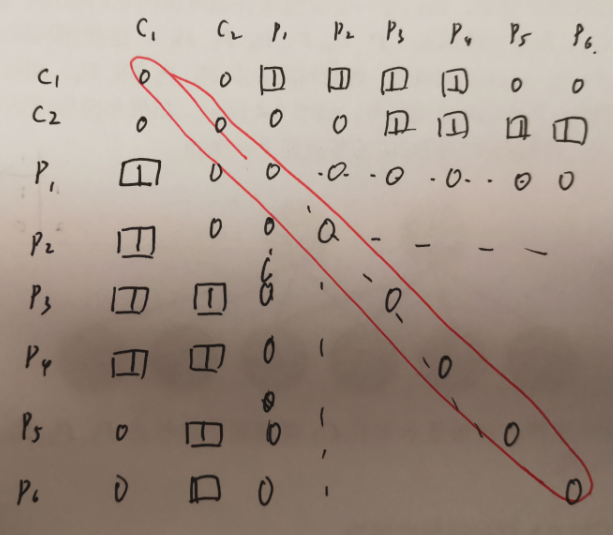 C₁ C₂ P₁ P₂ P₃ P₄ P₅ P₆.
C₁ 0 0 1 1 1 1 0 0
C₂ 0 0 0 0 1 1 1 1
P₁ 1 0 0 ·0· 0 ·0·· 0 0
P₂ 1 0 0 0 - - - -
P₃ 1 1 0 0
P₄ 1 1 0 0
P₅ 0 1 0 0
P₆ 0 0 0